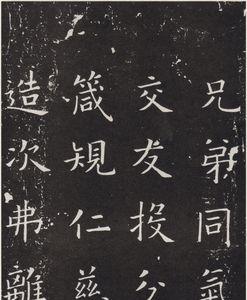 兄弟同氣
交友投分
箴規仁慈
造次弗離